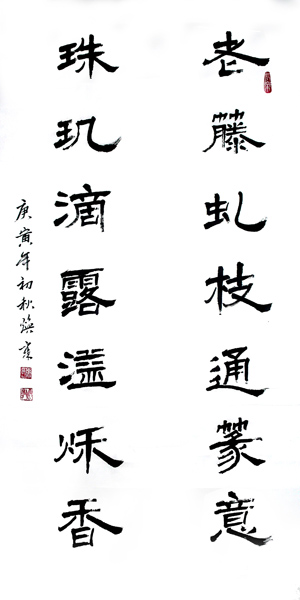 老藤虬枝通篆意
珠玑滴露溢秌香
庚寅年初秋